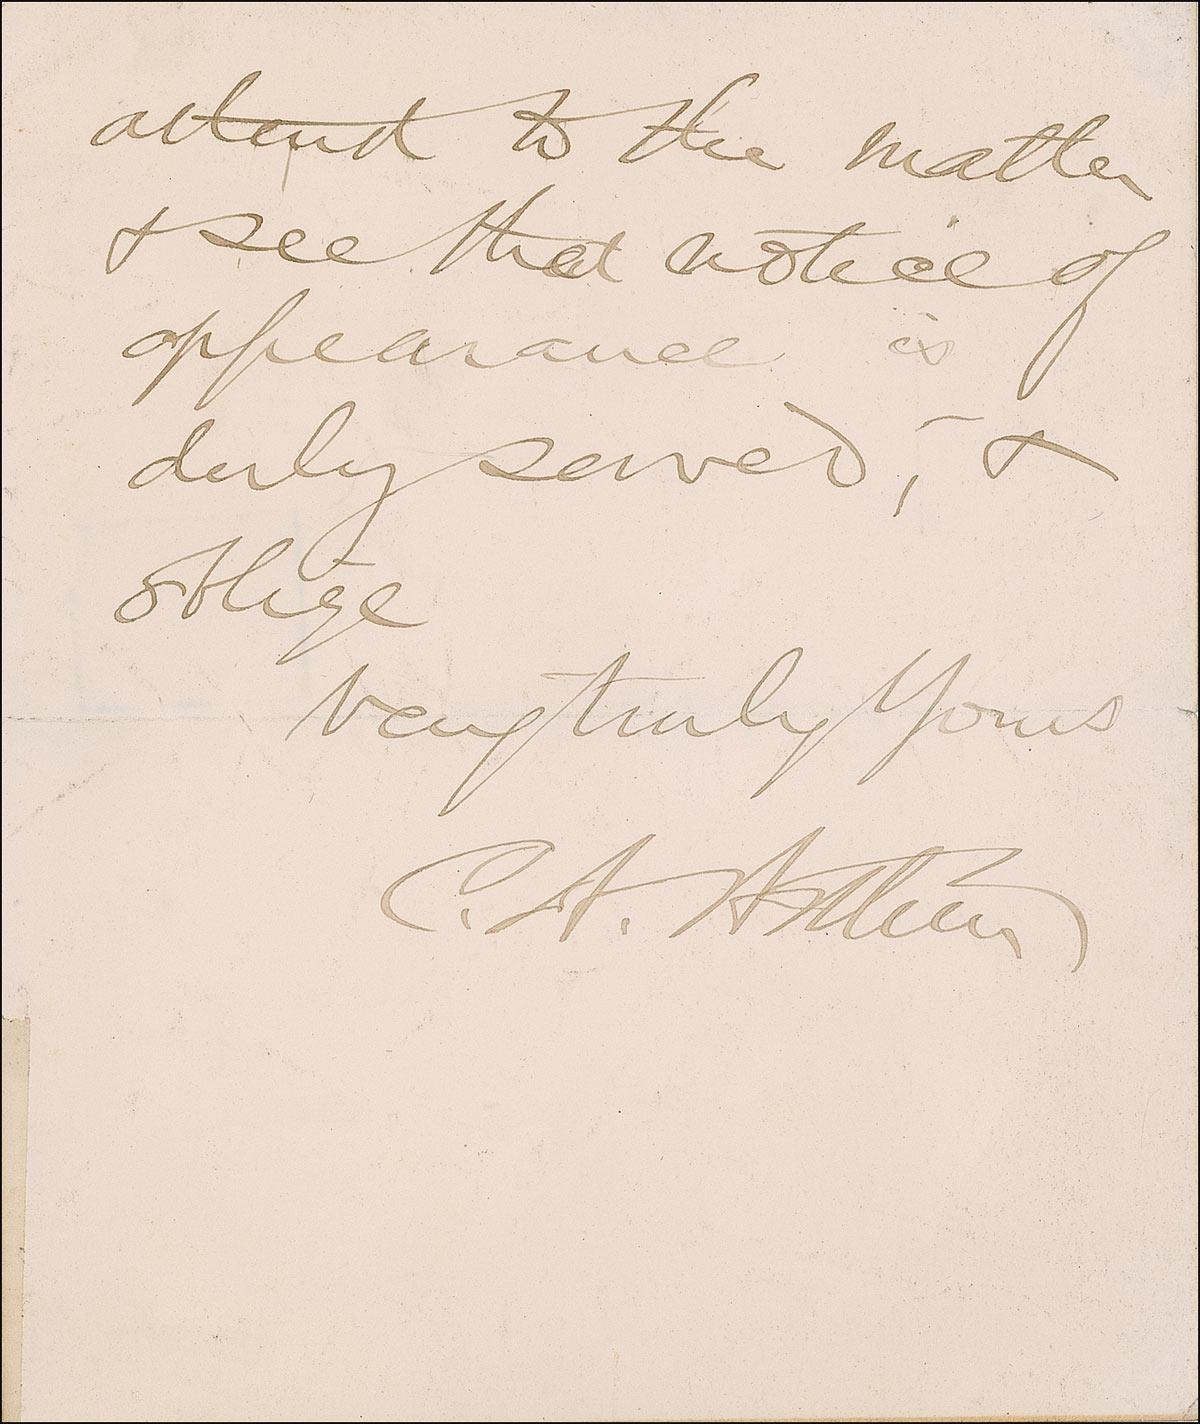 attend to the matter
& see that notice of
appearance is
duly served, - &
oblige
Very truly Yours
C. A. Arthur